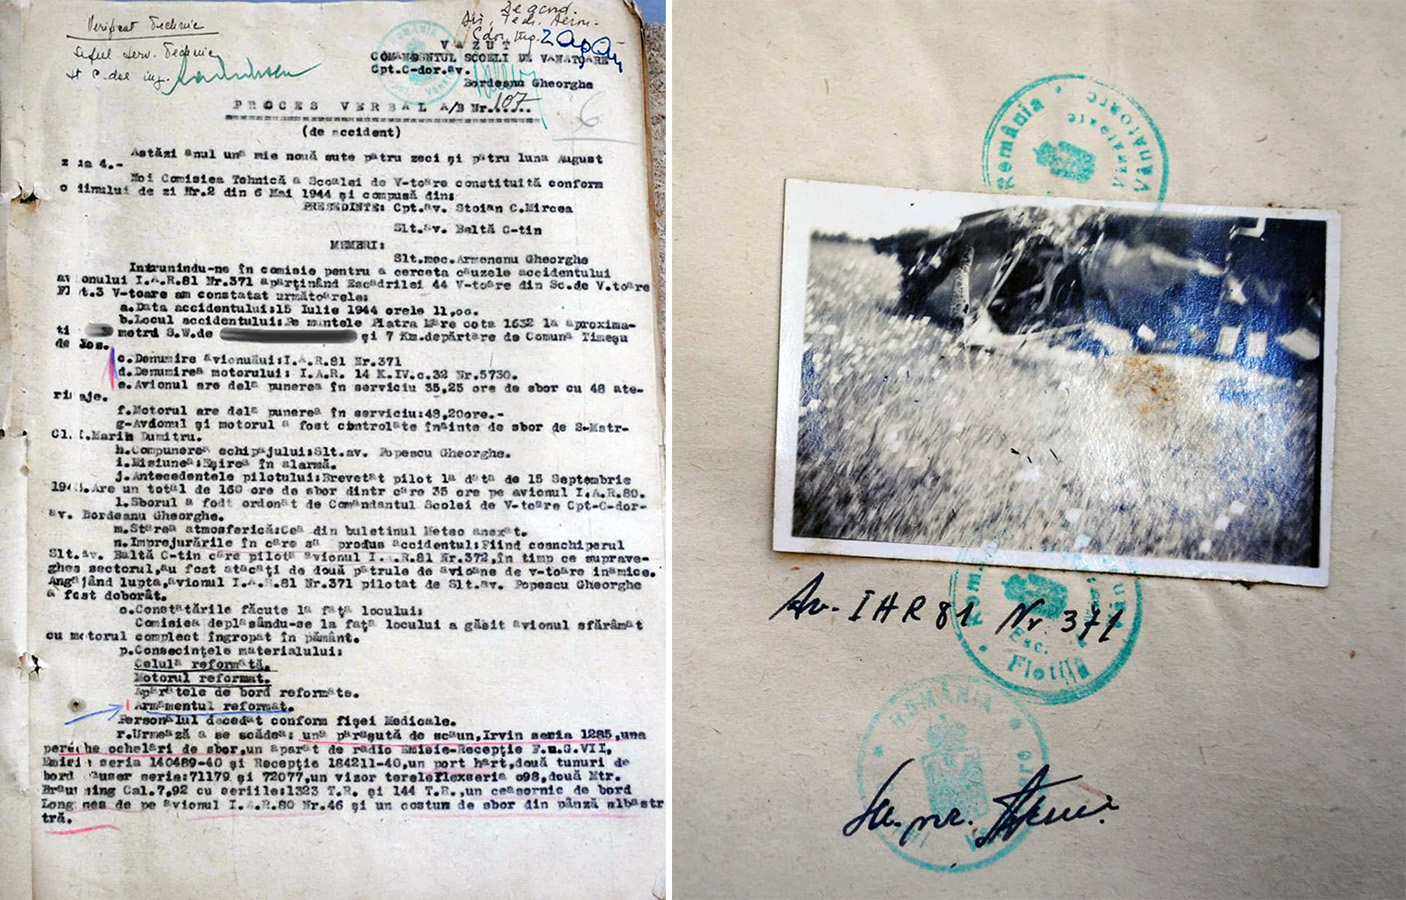 Verificat Technic
Seful Serv. Technic
VAZUT
COMANDENTUL SCOLEI DE VANATOARE
Cpt.C-dor.av.
Bordeanu Gheorghe
PROCES VERBAL A/B Nr. 107
(de accident)
Astăzi anul una mie nouă sute patru zeci și patru luna August
ziua 4.-
Noi Comisiea Tehnică a Scoalei de V-toare constituită conform
o dinului de zi Nr.2 din 6 Mai 1944 și compusă din:
PRESEDINTE: Cpt.av. Stoian C.Mircea
Slt.av. Baltă C-tin
MEMBRI:
Slt.mec.Armeneanu Gheorghe
Intrunindu-ne în comisie pentru a cerceta cauzele accidentului
avionului I.A.R.81 Nr.371 aparținând Escadrilei 44 V-toare din Sc.de V.toare
Flot.3 V-toare am constatat următoarele:
a.Data accidentului:15 Iulie 1944 orele 11,oo.
b.Locul accidentului:Pe muntele Piatra Mare cota 1632 la aproxima-
ti metri S.W.de și 7 Km.depărtare de Comuna Timeșu
de Jos.
c.Denumire avionuăui:I.A.R.81 Nr.371
d.Denumirea motorului: I.A.R. 14 K.IV.c.32 Nr.5730.
e.Avionul are dela punerea în serviciu 35,25 ore de sbor cu 48 ate-
rizaje.
f.Motorul are dela punerea în serviciu:48,20ore.-
g-Avionul și motorul a fost controlate înainte de sbor de S-Mstr-
Cl. I.Marin Dumitru.
h.Compunerea echipajului:Slt.av. Popescu Gheorghe.
i.Misiunea:Eșirea în alarmă.
j.Antecedentele pilotului:Brevetat pilot la data de 15 Septembrie
194 .Are un total de 160 ore de sbor dintr care 35 ore pe avionul I.A.R.80.
l.Sborul a fodt ordonat de Comandantul Scolei de V-toare Cpt-C-dor-
av. Bordeanu Gheorghe.
m.Starea atmosferică:Cea din buletinul Meteo anexat.
n.Imprejurările în care sa produs accidentul:Fiind coenchiperul
Slt.av. Baltă C-tin care pilota avionul I.A.R.81 Nr.372,în timp ce suprave-
ghea sectorul,au fost atacați de două patrule de avioane de v-toare inamice.
Angajând lupta,avionul I.A.R.81 Nr.371 pilotat de Slt.av. Popescu Gheorghe
a fost doborât.
o.Constatările făcute la fața locului:
Comisiea deplasându-se la fața locului a găsit avionul sfărâmat
cu motorul complect îngropat în pământ.
p.Consecințele materialului:
Celula reformată.
Motorul reformat.
Aparatele de bord reformate.
Armamentul reformat.
Personalul decedat conform fișei Medicale.
r.Urmează a se scădea: una parașută de scaun,Irvin seria 1285,una
pereche ochelari de sbor,un aparat de radio Emisie-Recepție F.u.G.VII,
Emisie seria 140489-40 și Recepție 184211-40,un port hart,două tunuri de
bord Mauser seria:71179 și 72077,un vizor tereleflexseria o98,două Mtr.
Brauning Cal.7,92 cu seriile:1323 T.R. și 144 T.R.,un ceasornic de bord
Longines de pe avionul I.A.R.80 Nr.46 și un costum de sbor din pânză albastr
tră.
România
VANATOARE
Av. IAR 81 Nr 371
Esc.
Flotila
ROMÂNIA